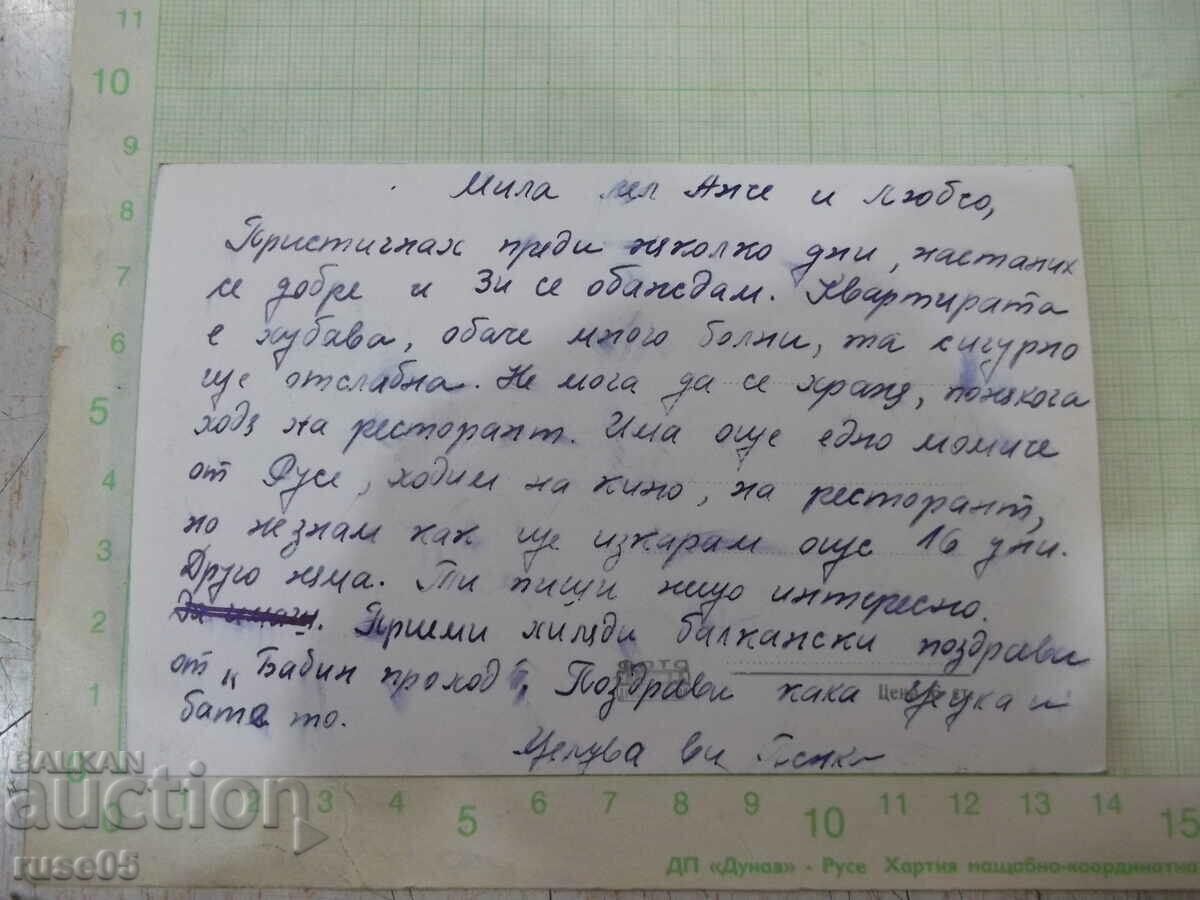 11
10
9
8
7
6
5
4
3
2
1
0
Мила Анче и Любчо,
Пристигнах преди няколко дни, настаних
се добре и Ви се обаждам. Квартирата
е хубава, обаче много болни, та сигурно
ще отслабна. Не мога да се храня, понякога
ходя на ресторант. Има още едно момиче
от Русе, ходим на кино, на ресторант,
но не знам как ще изкарам още 16 дни.
Друго няма. Ти пиши нещо интересно.
Приеми хиляди балкански поздрави
от „Бабин проход". Поздрави кака и
бате то.
Целува ви
ФОТО
Цена
BALKAN
auction
ruse05
0 1 2 3 4 5 6 7 8 9 10 11 12 13 14 15
ДП «Дунав» - Русе Хартия мащабно-координатна